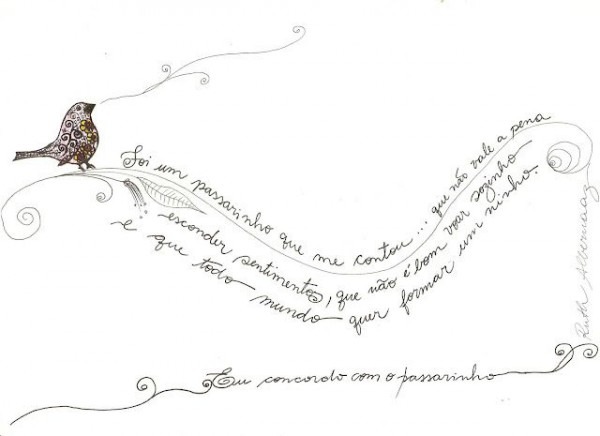 Foi um passarinho que me contou... que não vale a pena
esconder sentimentos, que não é bom voar sozinho
e que todo mundo quer formar um ninho.
Eu concordo com o passarinho
Ruth Albernaaz